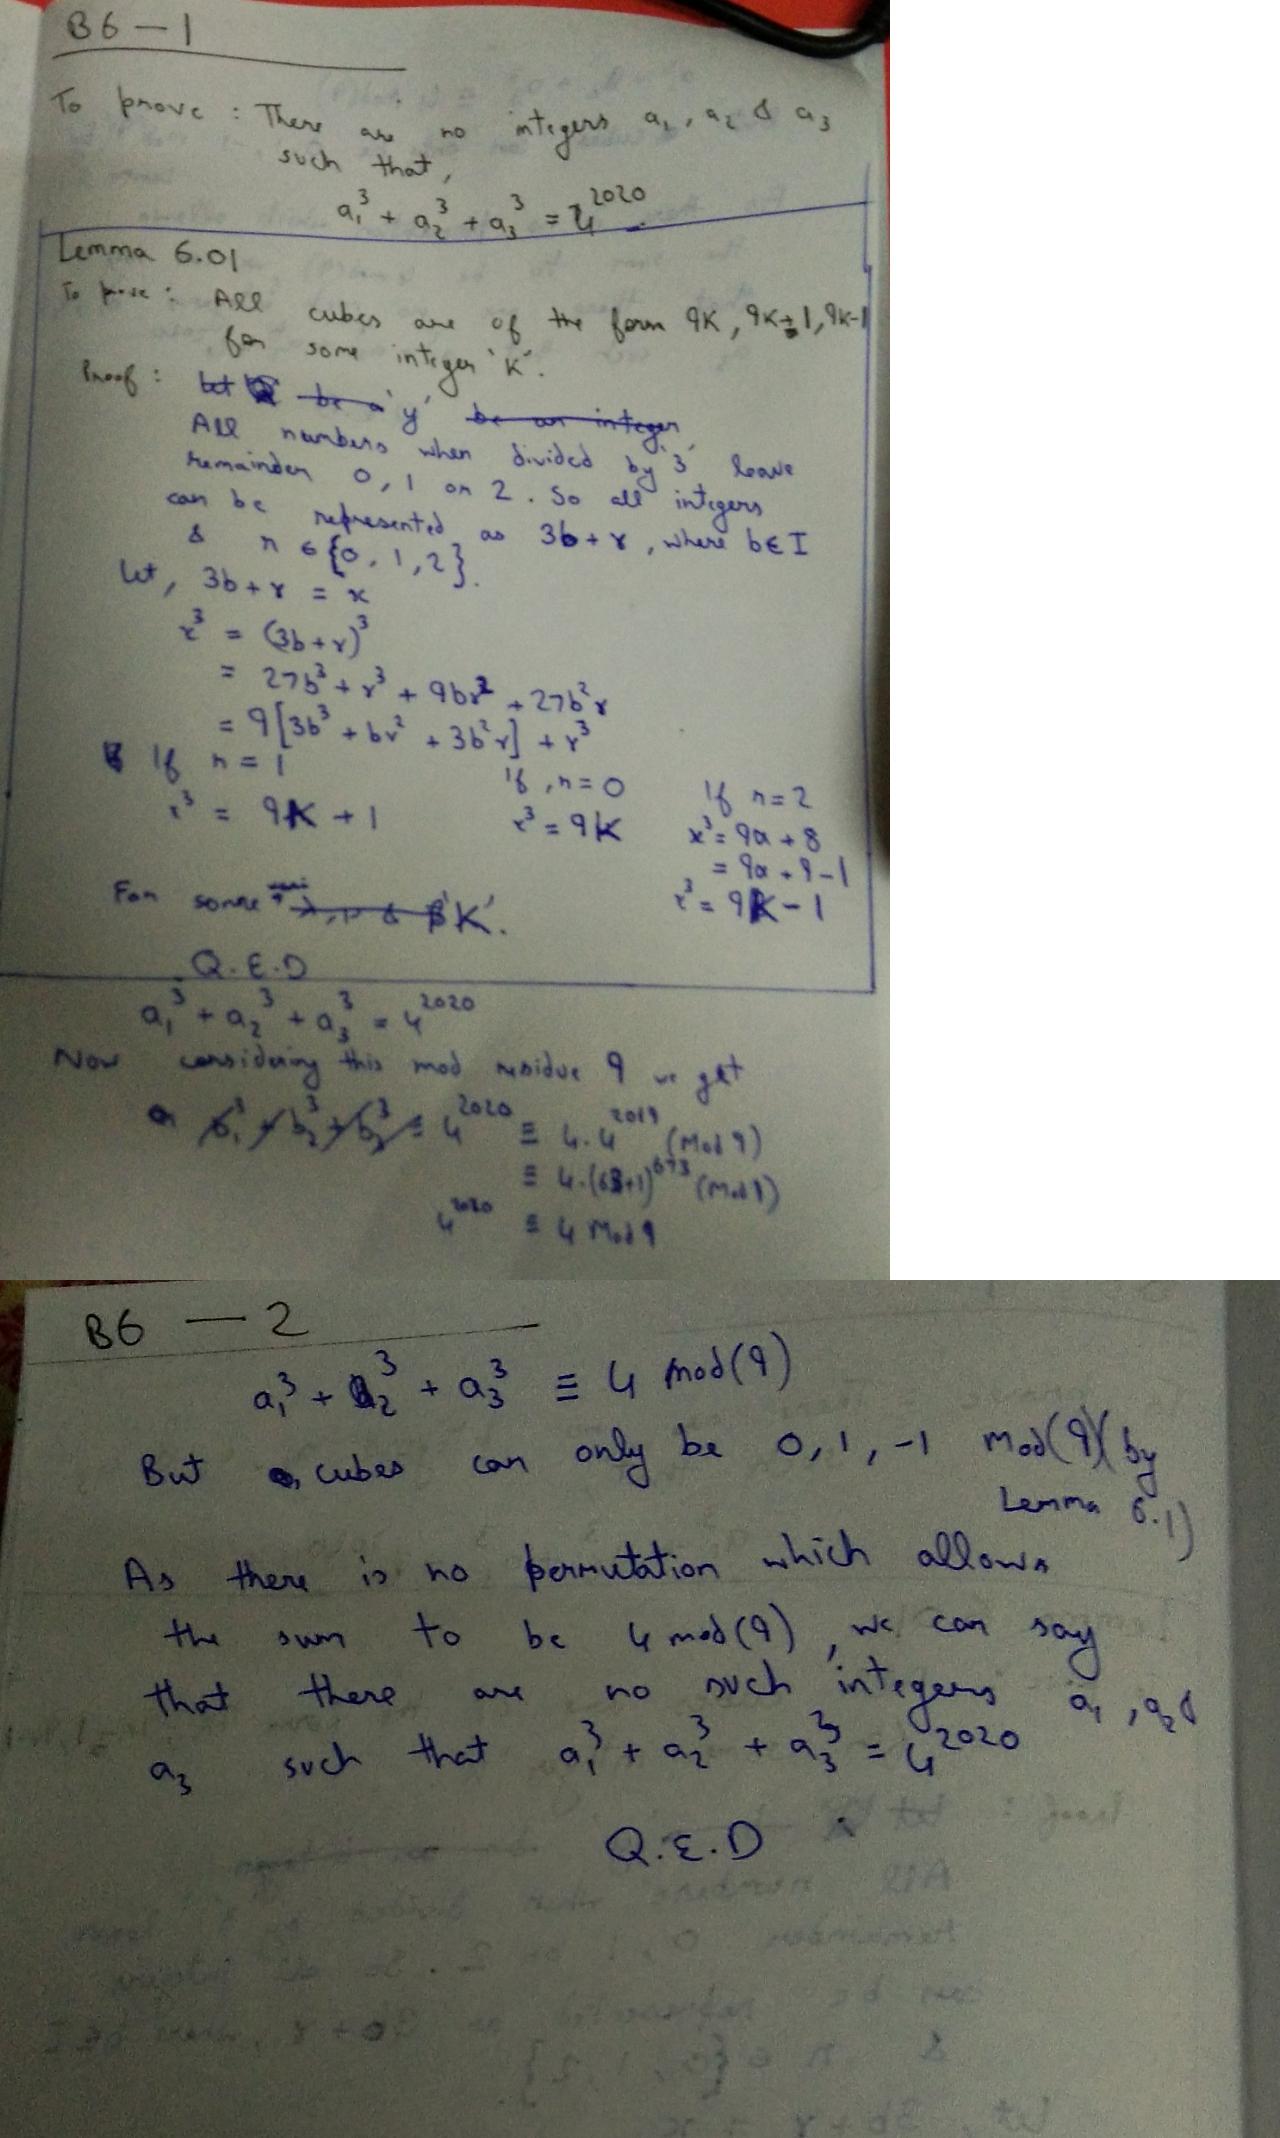 B6 - 1
To prove : There are no integers a₁, a₂ & a₃
such that,
a₁³ + a₂³ + a₃³ = 4²⁰²⁰
Lemma 6.01
To prove : All cubes are of the form 9K, 9K+1, 9K-1
for some integer 'K'.
Proof : let be a 'y' be an integer
All numbers when divided by '3' leave
remainder 0, 1 or 2. So all integers
can be represented as 3b + r, where b∈I
& r ∈ {0, 1, 2}.
Let, 3b + r = x
x³ = (3b + r)³
= 27b³ + r³ + 9br² + 27b²r
= 9[3b³ + br² + 3b²r] + r³
If r = 1 If, r = 0 If r = 2
x³ = 9K + 1 x³ = 9K x³ = 9a + 8
= 9a + 9 - 1
x³ = 9K - 1
For some 'K'.
Q.E.D
a₁³ + a₂³ + a₃³ = 4²⁰²⁰
Now considering this mod residue 9 we get
b₁³ + b₂³ + b₃³ ≡ 4²⁰²⁰ ≡ 4.4²⁰¹⁹ (Mod 9)
≡ 4.(63+1)⁶⁷³ (Mod 9)
4²⁰²⁰ ≡ 4 Mod 9
B6 — 2
a₁³ + a₂³ + a₃³ ≡ 4 mod(9)
But cubes can only be 0, 1, -1 Mod(9) (by
Lemma 6.1)
As there is no permutation which allows
the sum to be 4 mod(9), we can say
that there are no such integers a₁, a₂ &
a₃ such that a₁³ + a₂³ + a₃³ = 4²⁰²⁰
Q.E.D